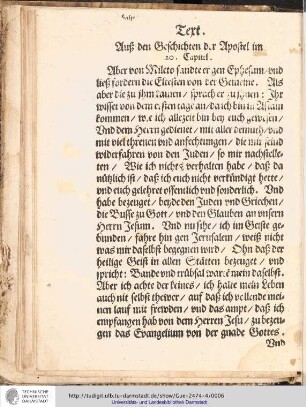 Text.
Auß den Geschichten der Apostel im
20. Capitel.
Aber von Mileto sandte er gen Ephesum/ vnd
ließ fordern die Eltesten von der Gemeine. Als
aber die zu jhm kamen/ sprach er zu jhnen: Ihr
wisset von dem ersten tage an/ da ich bin in Asiam
kommen/ wie ich allezeit bin bey euch gewesen/
Vnd dem Herrn gedienet/ mit aller demuth/ vnd
mit viel threnen vnd anfechtungen/ die mir seind
widerfahren von den Juden/ so mir nachstelle-
ten/ Wie ich nichts verhalten habe/ daß da
nützlich ist/ daß ich euch nicht verkündigt hette/
vnd euch gelehret offentlich vnd sonderlich. Vnd
habe bezeuget/ beyde den Juden vnd Griechen/
die Busse zu Gott/ vnd den Glauben an vnsern
Herrn Jesum. Vnd nu sihe/ ich im Geiste ge-
bunden/ fähre hin gen Jerusalem/ weiß nicht
was mir daselbst begegnen wird/ Ohn daß der
heilige Geist in allen Stätten bezeuget/ vnd
spricht: Bande vnd trübsal warten mein daselbst.
Aber ich achte der keines/ ich halte mein Leben
auch nit selbst thewer/ auf daß ich vollende mei-
nen lauf mit frewden/ vnd das ampt/ daß ich
empfangen hab von dem Herren Jesu/ zu bezeu-
gen das Evangelium von der gnade Gottes.
Vnd
TECHNISCHE
UNIVERSITÄT
DARMSTADT
http://tudigit.ulb.tu-darmstadt.de/show/Gue-2474-4/0006
Universitäts- und Landesbibliothek Darmstadt